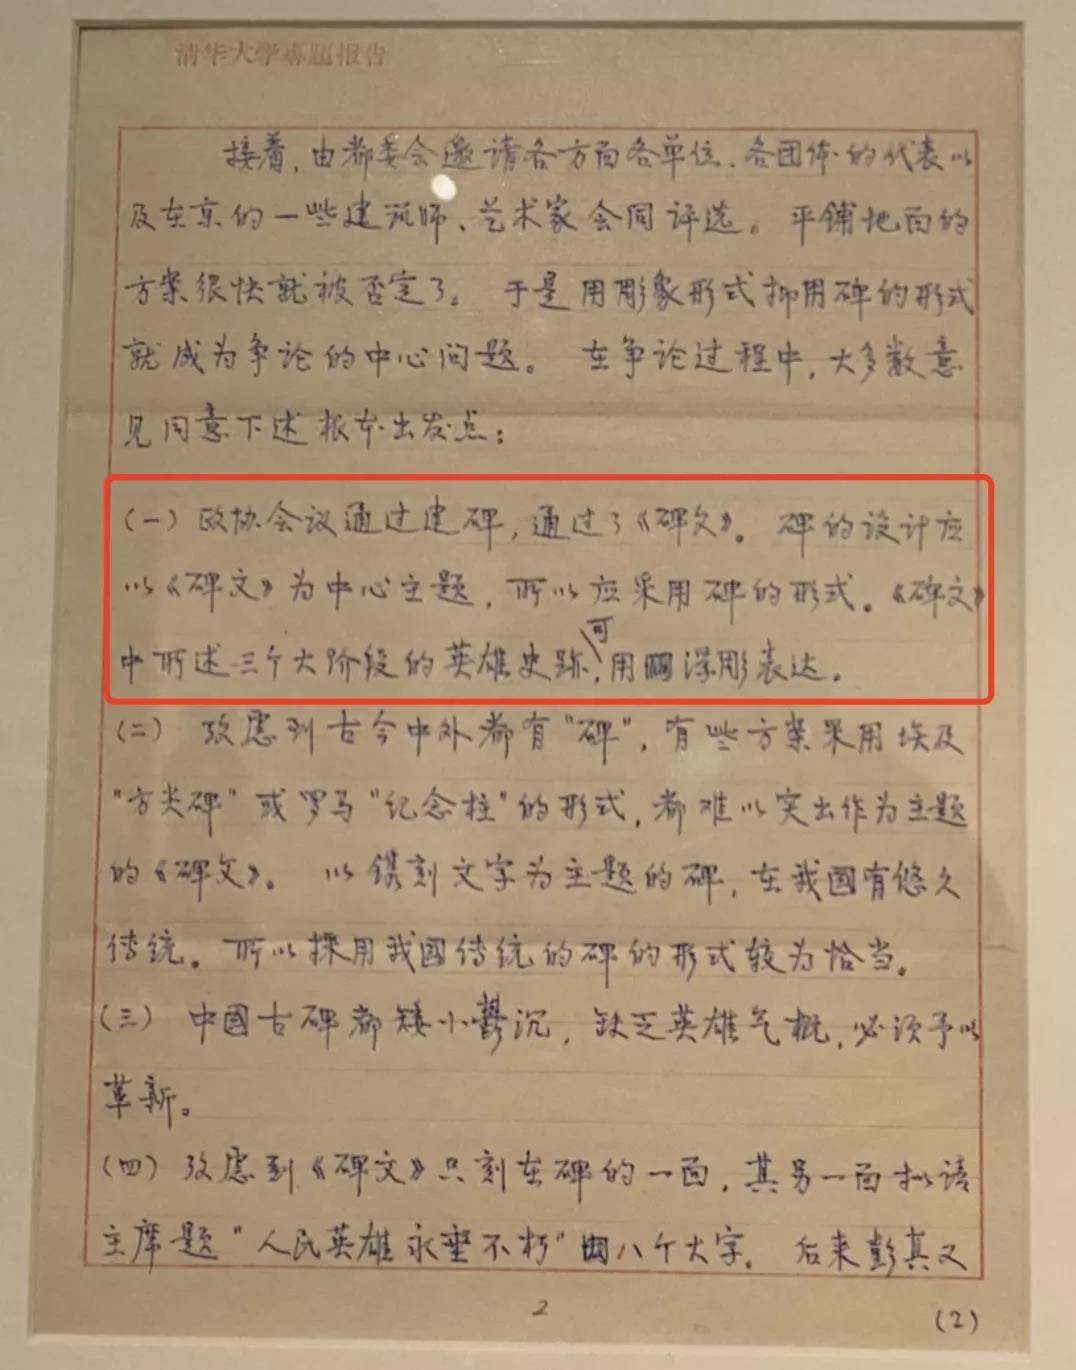 清华大学专题报告
接着，由都委会邀请各方面各单位、各团体的代表以
及在京的一些建筑师、艺术家会同评选。平铺地面的
方案很快就被否定了。于是用雕象形式抑用碑的形式
就成为争论的中心问题。在争论过程中，大多数意
见同意下述根本出发点：
（一）政协会议通过建碑，通过了《碑文》。碑的设计应
以《碑文》为中心主题，所以应采用碑的形式。《碑文》
中所述三个大阶段的英雄史跡，可用浮彫表达。
（二）攷虑到古今中外都有"碑"，有些方案采用埃及
"方尖碑"或罗马"纪念柱"的形式，都难以突出作为主题
的《碑文》。以镌刻文字为主题的碑，在我國有悠久
传统。所以採用我國传统的碑的形式较为恰当。
（三）中國古碑都矮小鬱沉，缺乏英雄气概，必须予以
革新。
（四）攷虑到《碑文》只刻在碑的一面，其另一面拟请
主席题"人民英雄永垂不朽"八个大字。后来彭真又
2
（2）